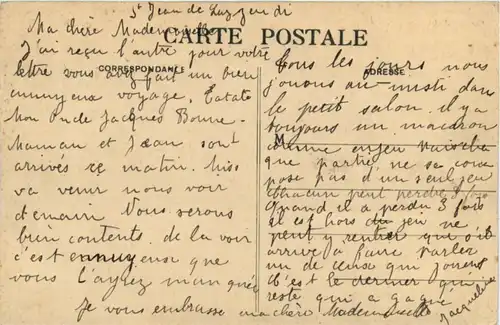 St Jean de Luz jeudi
Ma chère Mademoiselle
CARTE POSTALE
CORRESPONDANCE
ADRESSE
J'ai reçu l'autre jour votre
lettre vous avez fait un bien
ennuyeux voyage. Tatate
Mon Oncle Jacques Bonne-
Maman et Jean sont
arrivés ce matin. Miss
va venir nous voir
demain Nous serons
bien contents de la voir
c'est ennuyeuse que
vous l'ayez manquée
Je vous embrasse ma chère Mademoiselle
Jacqueline
Tous les jours nous
jouons au misti dans
le petit salon. il y a
toujours un macaron
M
comme enjeu
que partie ne se com
pose pas d'un seul jeu
chacun peut perdre 3 fois
Quand il a perdu 3 fois
il est hors du jeu ne
peut y rentrer que s'il
arrive a faire parler
un de ceux qui jouent
C'est le dernier qui
reste qui a gagné